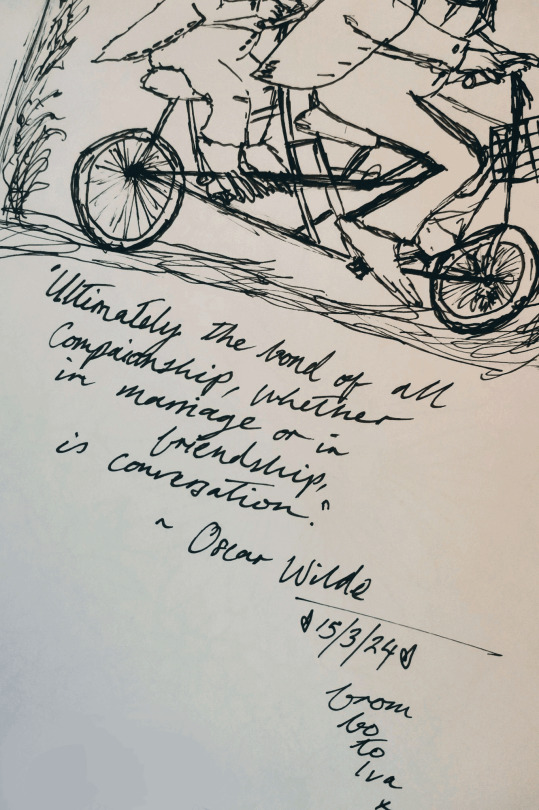 "Ultimately the bond of all
Compaionship, whether
in marriage or in
friendship,
is conversation."
~ Oscar Wilde
15/3/24
from
to
Iva
x